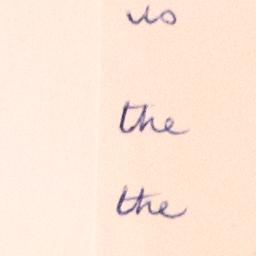 is
the
the